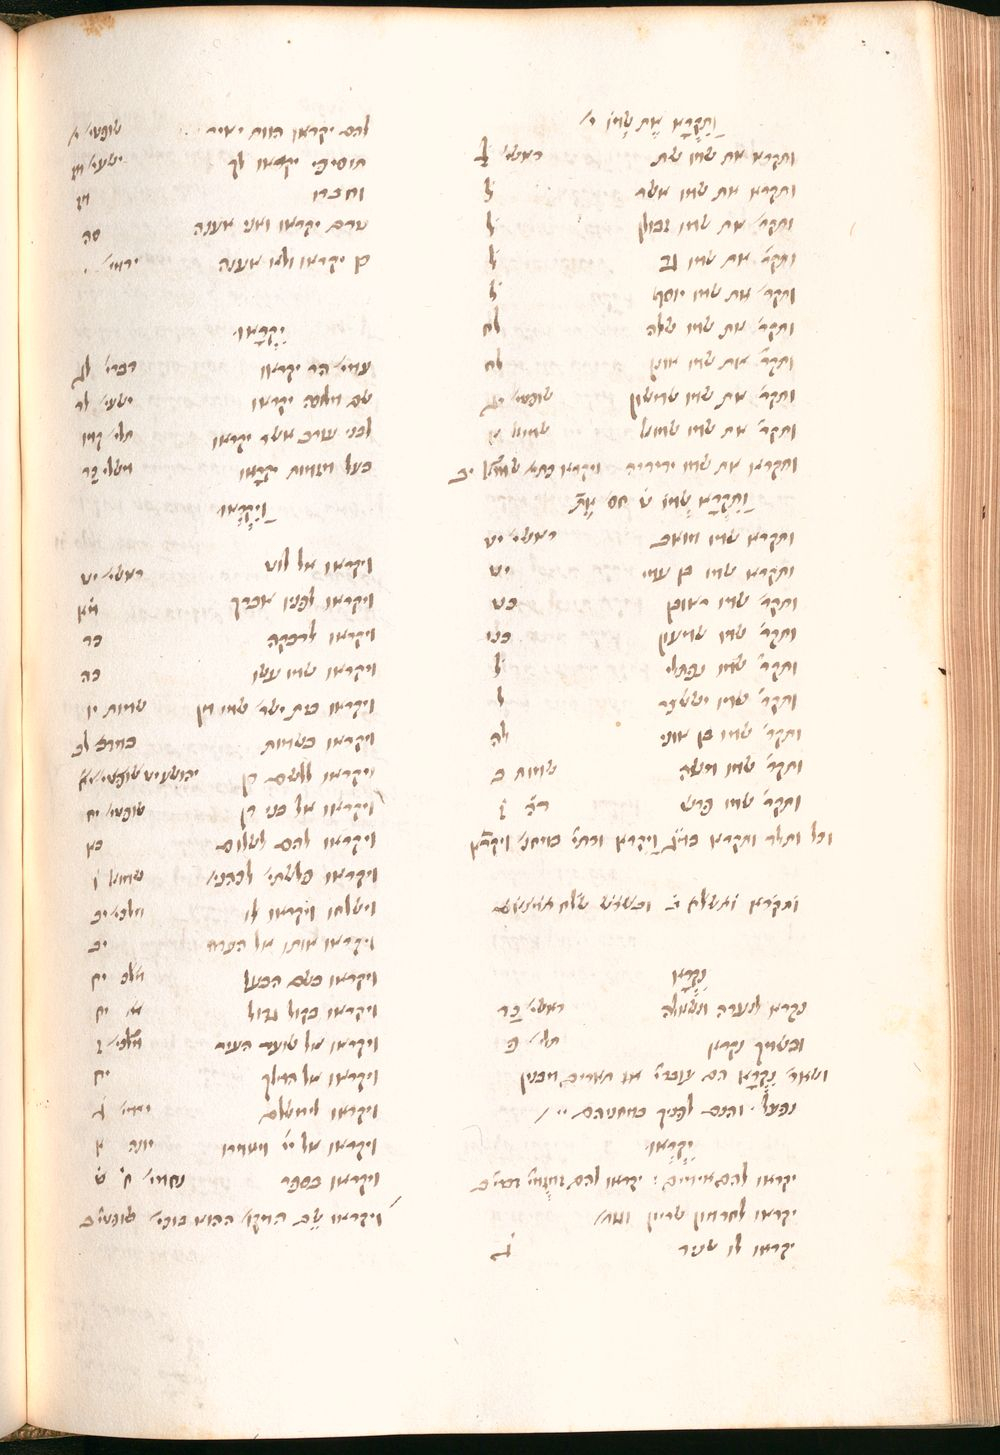 וַתִּקְרָא אֶת שְׁמוֹ י׳
ותקרא את שמו שת ראשי׳ ד
ותקרא את שמו אשר ל
ותקר׳ את שמו זבולון ל
ותקר׳ את שמו גד ל
ותקר׳ את שמו יוסף ל
ותקר׳ את שמו שלה לח
ותקר׳ את שמו אונן לח
ותקר׳ את שמו שמשון שופטי׳ יג
ותקר׳ את שמו שמואל שמוא׳ א
ותקרא את שמו ידידיה ויקרא כתי׳ שמואל יב
וַתִּקְרָא שְׁמוֹ ט׳ חס אֶת
ותקרא שמו מואב ראשי׳ יט
ותקרא שמו בן עמי יט
ותקר׳ שמו ראובן כט
ותקר׳ שמו שמעון כט
ותקר׳ שמו נפתלי ל
ותקר׳ שמו יששכר ל
ותקר׳ שמו בן אוני לה
ותקר׳ שמו משה שמות ב
ותקר׳ שמו פרש ד״ה ז
וכל ותלד ותקרא
ותקרא ותשלח
נִקְרָא
נקרא לנערה ונשאלה ראשי׳ כד
ובשמך נקרא תלי׳ פ
ושאר׳ נִקְרָא הם עוברי׳ או תארים מבנין
נפעל׳ והנם לפניך במחניהם
יִקְרְאוּ
יקראו להם אימים: יקראו להם זמזמי׳
יקראו לחרמון שריון
יקראו לו שניר ג
להם יקראו חוות יאיר שופטי׳ י
תוסיפי יקראו לך ישעי׳ מז
וחברו מז
טרם יקראו ואני אענה סה
כן יקראו ולא אענה ירמי׳
יִקְרָאוּ
עמי׳ הר יקראו דברי׳ לג
שם מלוכה יקראו ישעי׳ לד
לבני עורב אשר יקראו תלי׳ קמז
בעל מזמות יקראו משלי כד
וַיִּקְרְאוּ
ויקראו אל לוט ראשי׳ יט
ויקראו לפניו אברך מא
ויקראו לרבקה כד
ויקראו שמו עשו כה
ויקראו בית ישר׳ שמו מן שמות יו
ויקראו בשמות במדב׳ לב
ויקראו ללשם דן יהושע יט שופטי׳ יח
ויקראו אל בני דן שופטי׳ יח
ויקראו להם לשלום כא
ויקראו פלשתי׳ לכהני׳ שמוא׳ ו
וישלחו ויקראו לו מלכי׳ יב
ויקראו אותו אל העדה יב
ויקראו בשם הבעל מלכ׳ יח
ויקראו בקול גדול א׳ יח
ויקראו אל שוער העיר מלכי׳ ז
ויקראו אל המלך יח
ויקראו לירושלם ירמי׳ ג
ויקראו אל יי׳ ויאמרו יונה א
ויקראו בספר נחמי׳ ח׳ ט׳
ויקראו שֵׁם המקו׳ ההוא בוכי׳ שופטי׳ ב